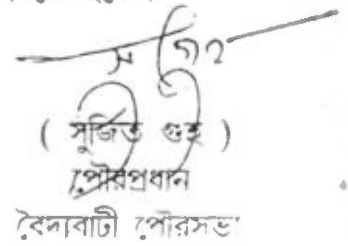 ( সুজিত গুহ )
পৌরপ্রধান
বৈদ্যবাটী পৌরসভা